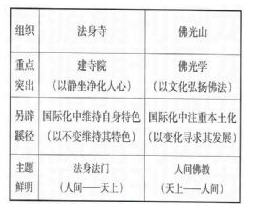 组织 法身寺 佛光山
重点 建寺院 佛光学
突出 (以静坐净化人心) (以文化弘扬佛法)
另辟 国际化中维持自身特色 国际化中注重本土化
蹊径 (以不变维持其特色) (以变化寻求其发展)
主题 法身法门 人间佛教
鲜明 (人间——天上) (天上——人间)